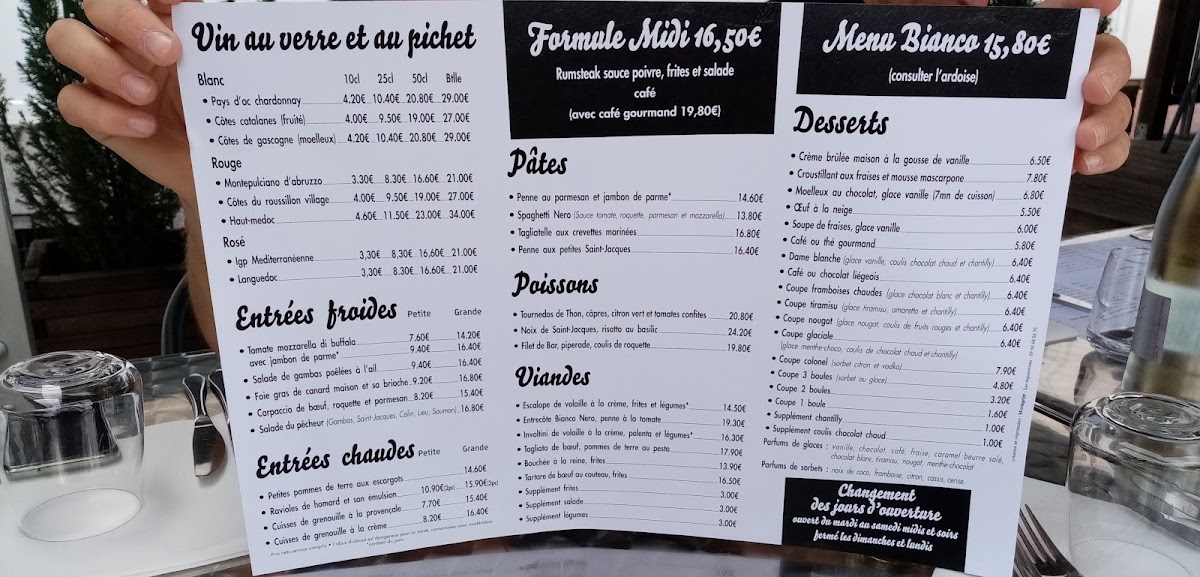 Vin au verre et au pichet
Blanc 10cl 25cl 50cl Btlle
• Pays d'oc chardonnay 4.20€ 10.40€ 20.80€ 29.00€
• Côtes catalanes (fruité) 4.00€ 9.50€ 19.00€ 27.00€
• Côtes de gascogne (moelleux) 4.20€ 10.40€ 20.80€ 29.00€
Rouge
• Montepulciano d'abruzzo 3.30€ 8.30€ 16.60€ 21.00€
• Côtes du roussillon village 4.00€ 9.50€ 19.00€ 27.00€
• Haut-medoc 4.60€ 11.50€ 23.00€ 34.00€
Rosé
• Igp Mediterranéenne 3,30€ 8,30€ 16,60€ 21.00€
• Languedoc 3,30€ 8.30€ 16.60€ 21.00€
Entrées froides Petite Grande
• Tomate mozzarella di buffala 7.60€ 14.20€
avec jambon de parme* 9.40€ 16.40€
• Salade de gambas poêlées à l'ail 16.40€
• Foie gras de canard maison et sa brioche 9.20€ 16.80€
• Carpaccio de bœuf, roquette et parmesan 8.20€ 15.40€
• Salade du pécheur (Gambas, Saint-Jacques, Colin, Lieu, Saumon) 16.80€
Entrées chaudes Petite Grande
• Petites pommes de terre aux escargots 14.60€
• Ravioles de homard et son émulsion 10.90€(2pc) 15.90€(3pc)
• Cuisses de grenouille à la provençale 7.70€ 15.40€
• Cuisses de grenouille à la crème 8.20€ 16.40€
Prix nets service compris • l'abus d'alcool est dangereux pour la santé, consommez avec modération
Formule Midi 16,50€
Rumsteak sauce poivre, frites et salade
café
(avec café gourmand 19,80€)
Pâtes
• Penne au parmesan et jambon de parme* 14.60€
• Spaghetti Nero (Sauce tomate, roquette, parmesan et mozzarella) 13.80€
• Tagliatelle aux crevettes marinées 16.80€
• Penne aux petites Saint-Jacques 16.40€
Poissons
• Tournedos de Thon, câpres, citron vert et tomates confites 20.80€
• Noix de Saint-Jacques, risotto au basilic 24.20€
• Filet de Bar, piperade, coulis de roquette 19.80€
Viandes
• Escalope de volaille à la crème, frites et légumes* 14.50€
• Entrecôte Bianco Nero, penne à la tomate 19.30€
• Involtini de volaille à la crème, polenta et légumes* 16.30€
• Tagliata de bœuf, pommes de terre au pesto 17.90€
• Bouchée à la reine, frites 13.90€
• Tartare de bœuf au couteau, frites 16.50€
• Supplément frites 3.00€
• Supplément salade 3.00€
• Supplément légumes 3.00€
Menu Bianco 15,80€
(consulter l'ardoise)
Desserts
• Crème brûlée maison à la gousse de vanille 6.50€
• Croustillant aux fraises et mousse mascarpone 7.80€
• Moelleux au chocolat, glace vanille (7mn de cuisson) 6.80€
• Œuf à la neige 5.50€
• Soupe de fraises, glace vanille 6.00€
• Café ou thé gourmand 5.80€
• Dame blanche (glace vanille, coulis chocolat chaud et chantilly) 6.40€
• Café ou chocolat liégeois 6.40€
• Coupe framboises chaudes (glace chocolat blanc et chantilly) 6.40€
• Coupe tiramisu (glace tiramisu, amaretto et chantilly) 6.40€
• Coupe nougat (glace nougat, coulis de fruits rouges et chantilly) 6.40€
• Coupe glaciale 6.40€
(glace menthe-choco, coulis de chocolat chaud et chantilly)
• Coupe colonel (sorbet citron et vodka) 7.90€
• Coupe 3 boules (sorbet ou glace) 4.80€
• Coupe 2 boules 3.20€
• Coupe 1 boule 1.60€
• Supplément chantilly 1.00€
• Supplément coulis chocolat chaud 1.00€
Parfums de glaces : vanille, chocolat, café, fraise, caramel beurre salé,
chocolat blanc, tiramisu, nougat, menthe-chocolat
Parfums de sorbets : noix de coco, framboise, citron, cassis, cerise.
Changement
des jours d'ouverture
ouvert du mardi au samedi midis et soirs
fermé les dimanches et lundis